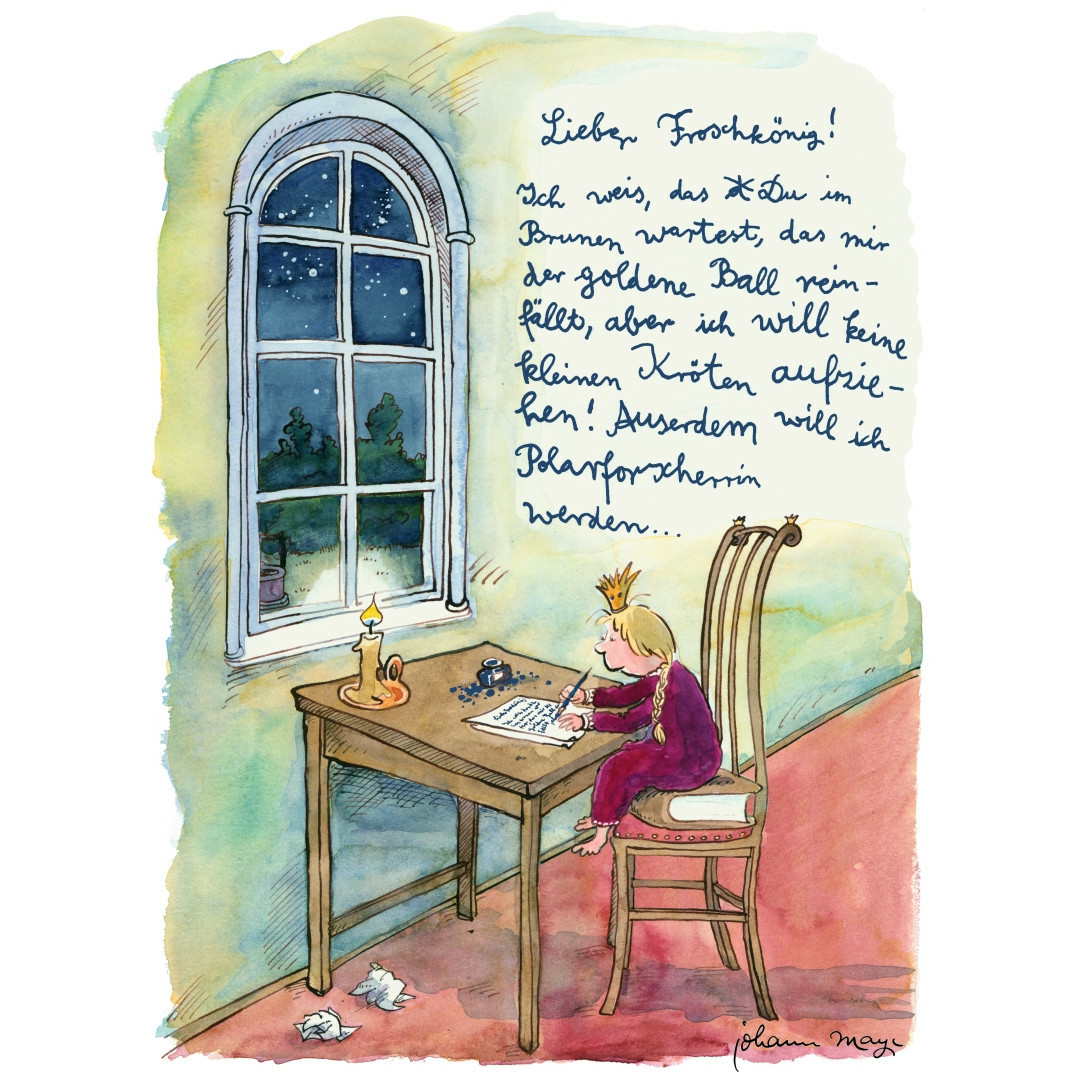 Lieber Froschkönig!
Ich weis, das Du im
Brunen wartest, das mir
der goldene Ball rein-
fällt, aber ich will keine
kleinen Kröten aufzie-
hen! Auserdem will ich
Polarforscherrin
werden...